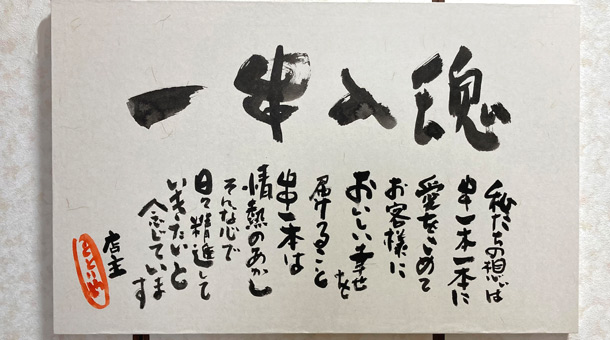 一串入魂
私たちの想いは
串一本一本に
愛をこめて
お客様に
おいしい幸せを
届けること
串一本は
情熱のあかし
そんな心で
日々精進して
いきたいと
念じています
店主